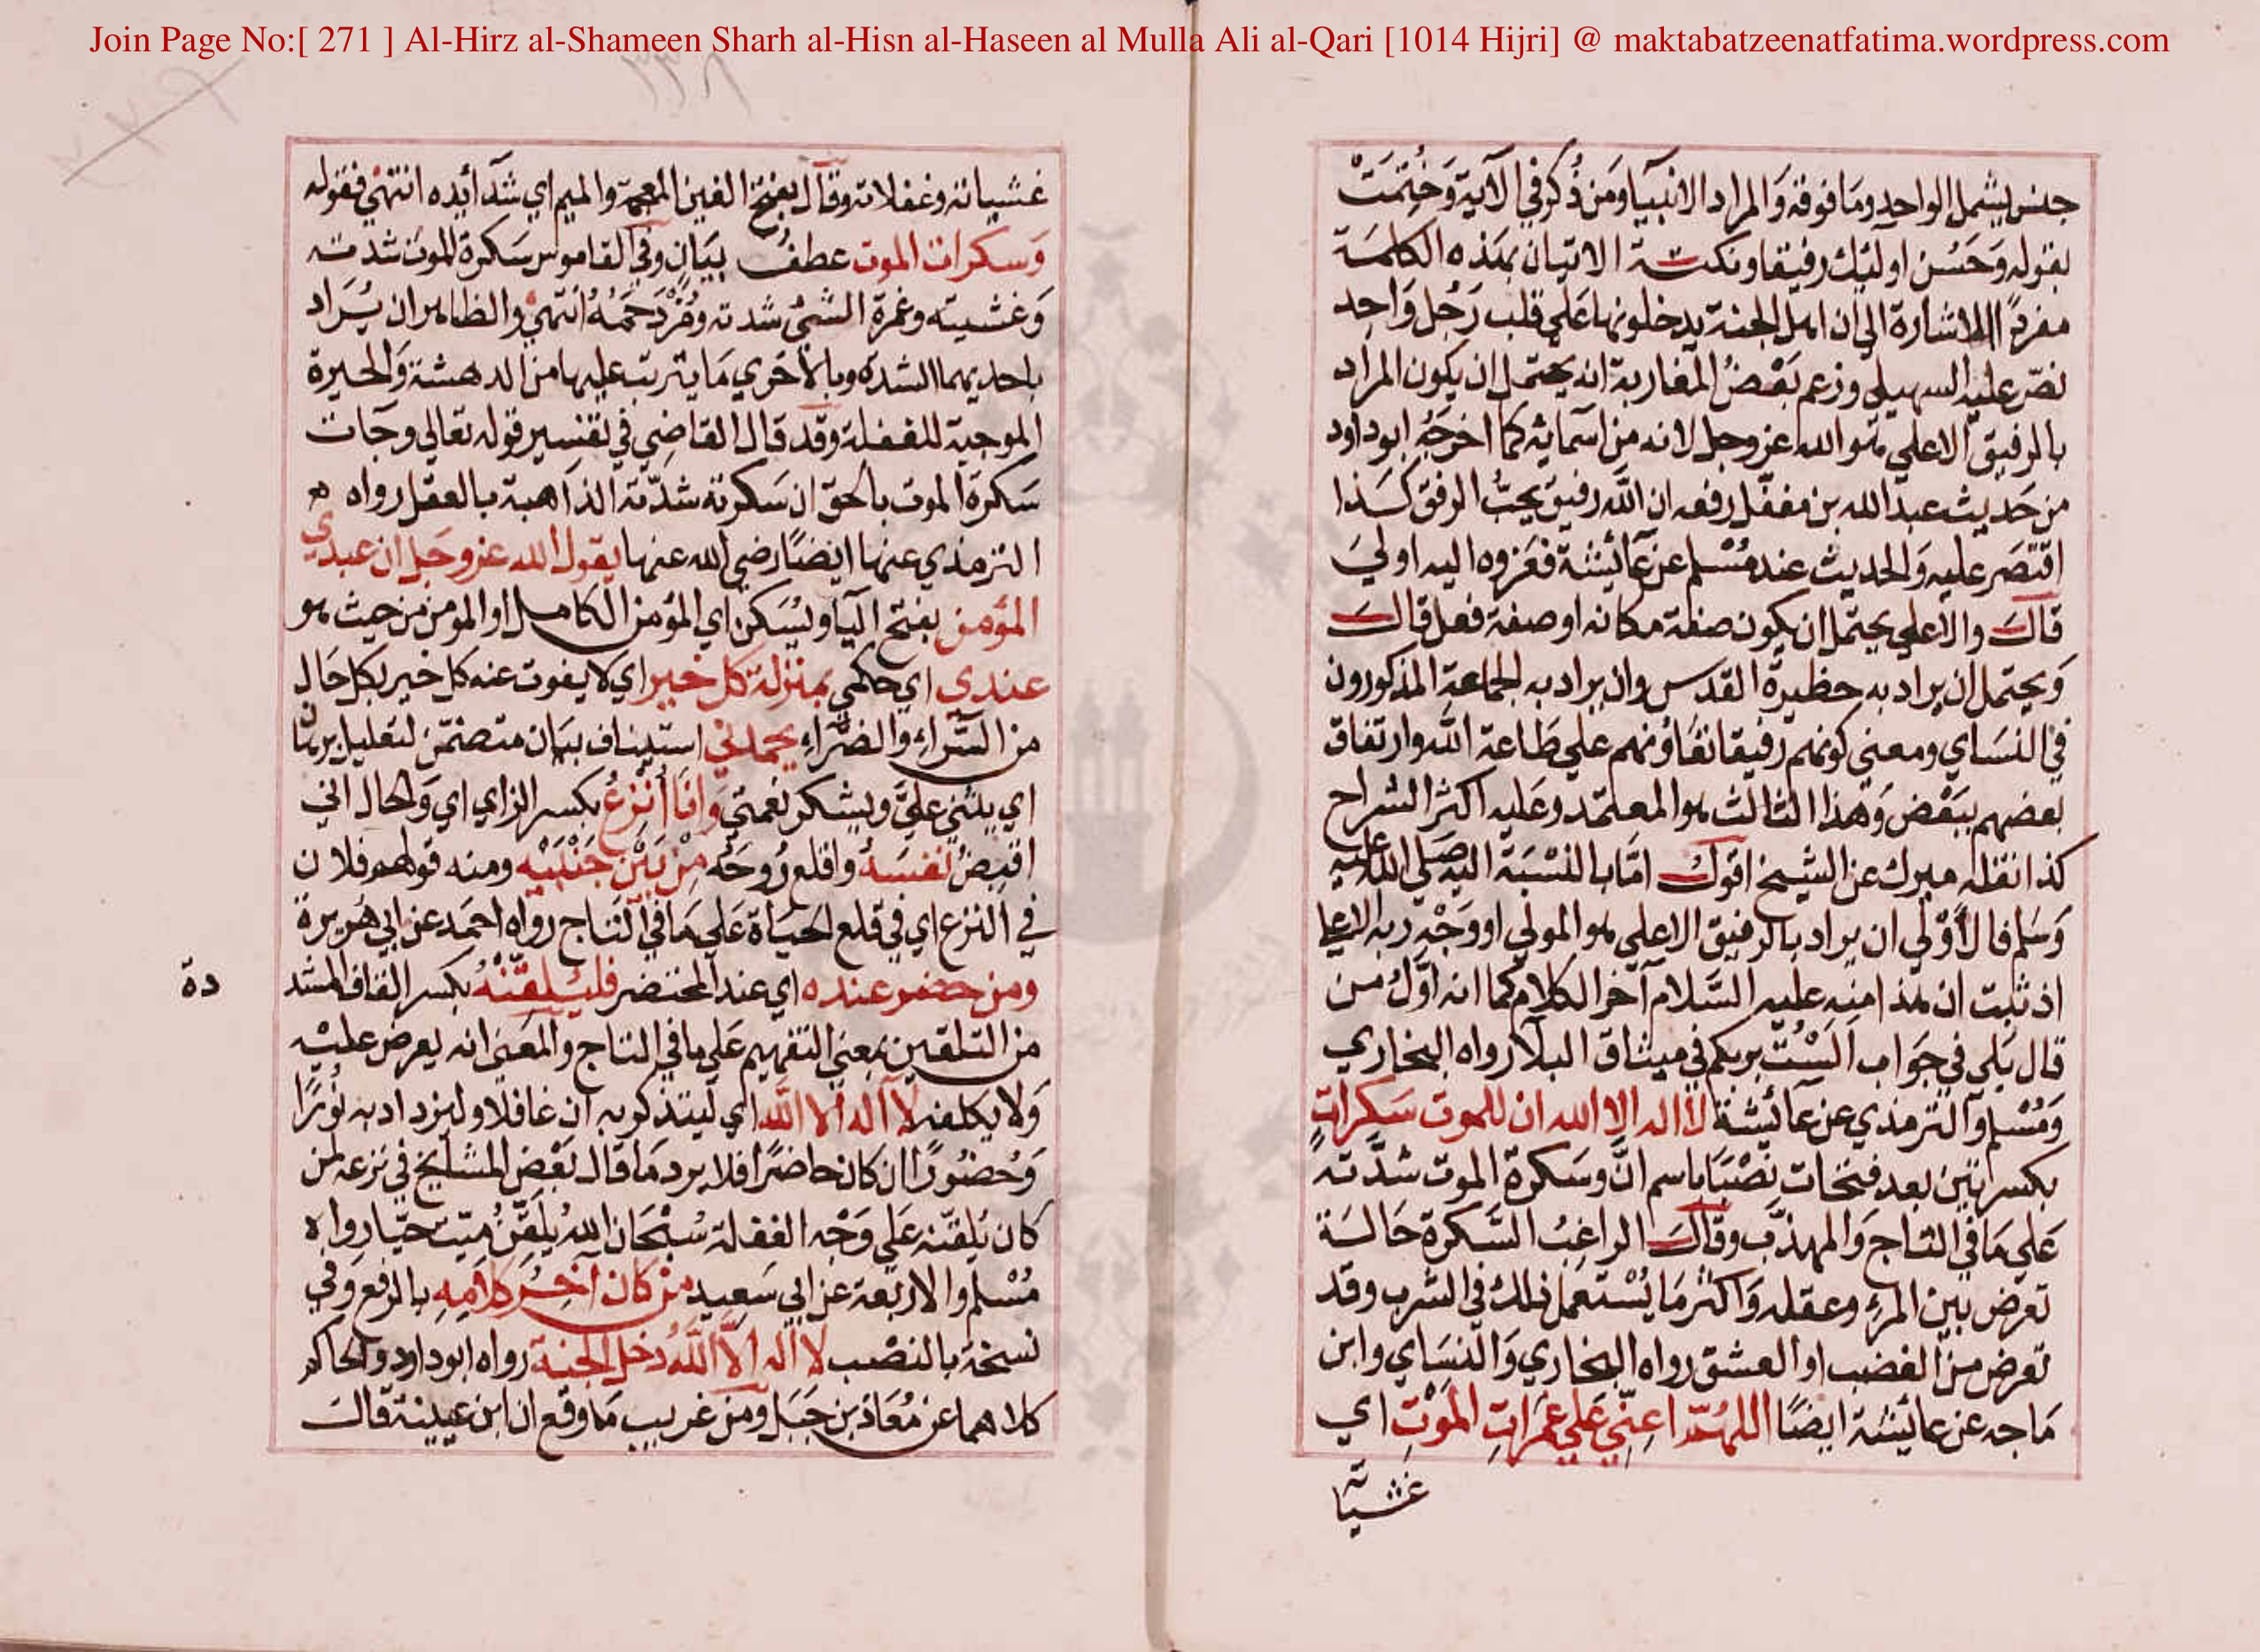 Join Page No:[ 271 ] Al-Hirz al-Shameen Sharh al-Hisn al-Haseen al Mulla Ali al-Qari [1014 Hijri] @ maktabatzeenatfatima.wordpress.com
٣٣٨
جنس يشمل الواحد وما فوقه وَالمراد الانبيا ومَن ذُكر في الآية وَخُتِمَتْ
بقوله وَحَسُن اولئِك رفيقا ونكتة الاتيان بهذه الكلمَة
مفردًا الاشارة الي ان اهل الجنة يدخلونها عَلي قلب رَجُل وَاحِد
نصّ عليه السهيلي وزعم بَعْضُ المغاربة انه يحتمل ان يكون المراد
بالرفيق الاعلي هو الله عز وجل لانه من اسمائه كما اخرَجُه ابوداود
من حَديث عبد الله بن مغفّل رفعه ان الله رفيق يحبُّ الرفق كَذا
اقتصَر عليه وَالحديث عند مُسْلم عن عَائِشة فعَزوه اليه اولي
قَالَ والاعلي يحتمل ان يكون صفة مكانه او صفة فعل قالَ
وَيحتمل ان يراد به حظيرة القدس وان يراد به الجماعة المذكورون
في النسَاي ومعني كونهم رفيقا تعَاوُنهم علي طَاعة الله وارتفاق
بعضهم ببَعْض وَهذا الثالث هو المعتمد وعَليه اكثر الشراح
كذا نقله ميرك عن الشيخ اقول امّا بالنسْبَة اليه صَلي الله عليه
وَسَلم فالأَوْلي ان يراد بالرفيق الاعلي هو المولي او وَجْه ربه الاعلي
اذ ثبت ان هذا منه عليه السَّلام آخر الكلام كما انه اوَّلُ من
قال بَلي في جوَاب اَلسْتُ بربكم في ميثاق البلا رواه البخاري
وَمُسْلم وَالترمذي عن عَائِشة لا اله الا الله ان للموت سَكرَاتٍ
بكسرَتين بعد فتحات نصْبًا باسم انَّ وسَكرة الموت شدّته
عَلي مَا في التاج وَالمهذّب وقالَ الراغبُ السَّكرة حَالَة
تعرض بين المرء وعقله وَاكثر مَا يُسْتعمل ذلك في الشرب وقد
تعرض من الغضب او العشق رواه البخاري وَالنسَاي وابن
مَاجه عن عائِشة ايضًا اللهُمّ اعنِّي عَلي غمَرَاتِ الموْتِ اي
غشياته
غشياته وغفلاته وقال بفتح الغين المعجمة والميم اي شدآئده انتهي فقوله
وَسكرات الموت عطف بيَان وفي القاموس سَكرة الموت شدته
وَغشيته وغمرة الشئ شدته ومُزْدَحَمُهُ انتهي والظاهر ان يُرَاد
باحديهما الشدة وبالأخري مَا يترتب عليها من الدهشة وَالحيرة
الموجبة للغفلة وقد قال القاضِي في تفسير قوله تعَالي وجَات
سَكرة الموت بالحق ان سَكرته شدّته الذاهبة بالعقل رواه
الترمذي عنها ايضًا رضي الله عنها يقول الله عز وجَل ان عبدي
المؤمن بفتح اليَا ويُسَكن اي المؤمن الكامل او المومن من حيث هو
عندي اي حكمي بمنزلة كل خير اي لا يفوت عنه كل خير بكل حَال
من السَّراءِ والضرَّاءِ يحمدني استيناف بيَان متضمّن لتعليل
اي يثني عليَّ ويشكر نعمتي وَانَا أنْزعُ بكسر الزاي اي وَالحال اني
اقبضُ نفسَهُ واقلع رُوحَهُ مِنْ بَيْن جَنْبَيْه ومنه قولهم فلان
في النزع اي في قلع الحيَاة عَلي مَا في التاج رواه احمَد عن ابي هُريرة
ومن حضر عنده اي عند المحتضر فليُلقّنْهُ بكسر القاف المشد
دة
من التلقين بمعني التفهيم عَلي ما في التاج والمعَني انه يعرض عليْه
وَلا يكلفه لا اله الا الله اي ليتذكر به ان غافلا وليزداد به نُورًا
وَحُضُورًا ان كان حَاضرًا فلا يرد مَا قال بَعْض المشايخ في نزعه لمن
كان يُلقنه عَلي وَجْه الغفلة سُبْحَان الله يُلَقِّنُ مَيّت حيّا رواه
مُسْلم والاربَعة عن ابي سَعيد من كان آخِرُ كلامِه بالرفع وَفي
نسخة بالنصْب لا اله الا اللهُ دَخل الجنة رواه ابوداود والحاكم
كلاهما عن مُعَاذ بن جَبَل ومن غريب مَا وقع ان ابن عيينة قالَ